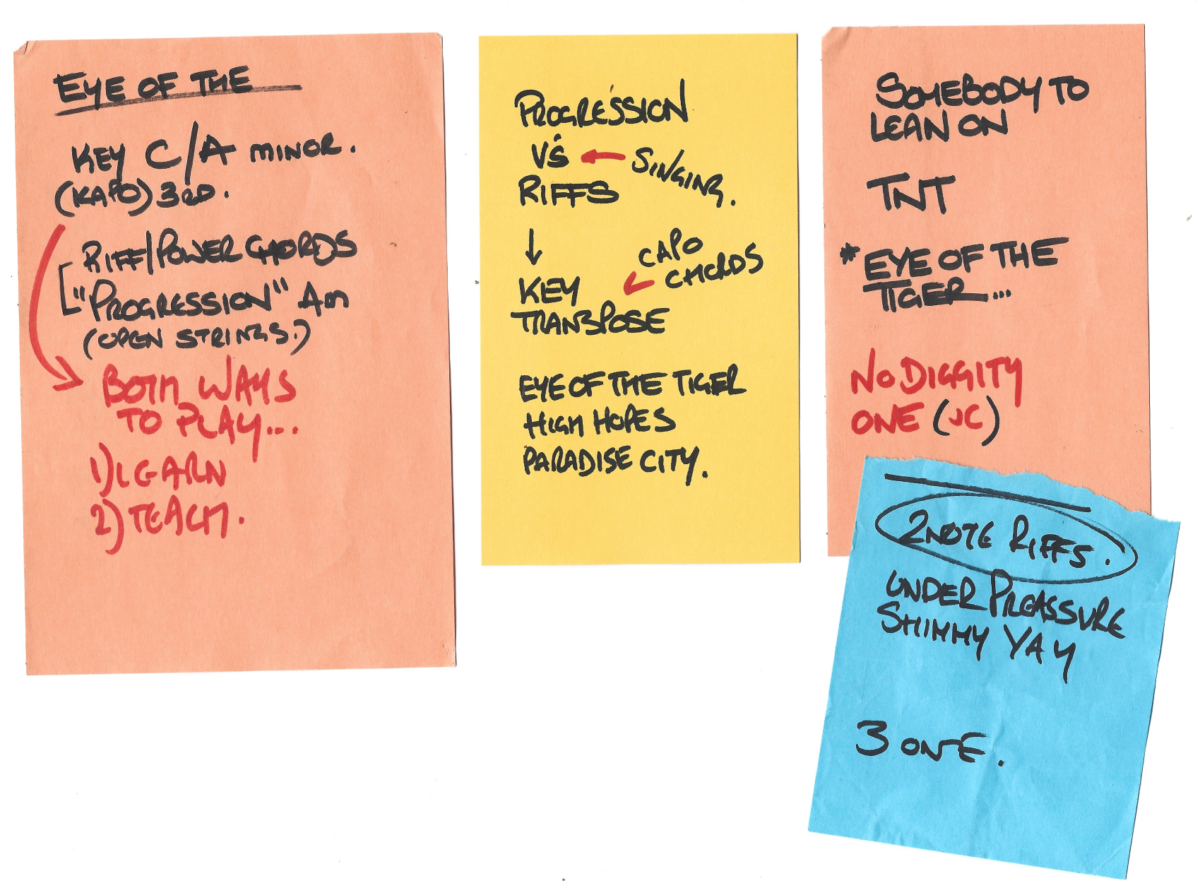 EYE OF THE
KEY C/A MINOR.
(KAPO) 3RD.
RIFF/POWER CHORDS
"PROGRESSION" Am
(OPEN STRINGS.)
BOTH WAYS
TO PLAY...
1) LEARN
2) TEACH.
PROGRESSION
VS ← SINGING.
RIFFS
↓
CAPO
CHORDS
KEY
TRANSPOSE
EYE OF THE TIGER
HIGH HOPES
PARADISE CITY.
SOMEBODY TO
LEAN ON
TNT
* EYE OF THE
TIGER...
NO DIGGITY
ONE (JC)
2 NOTE RIFFS.
UNDER PREASSURE
SHIMMY YAY
3 ONE.